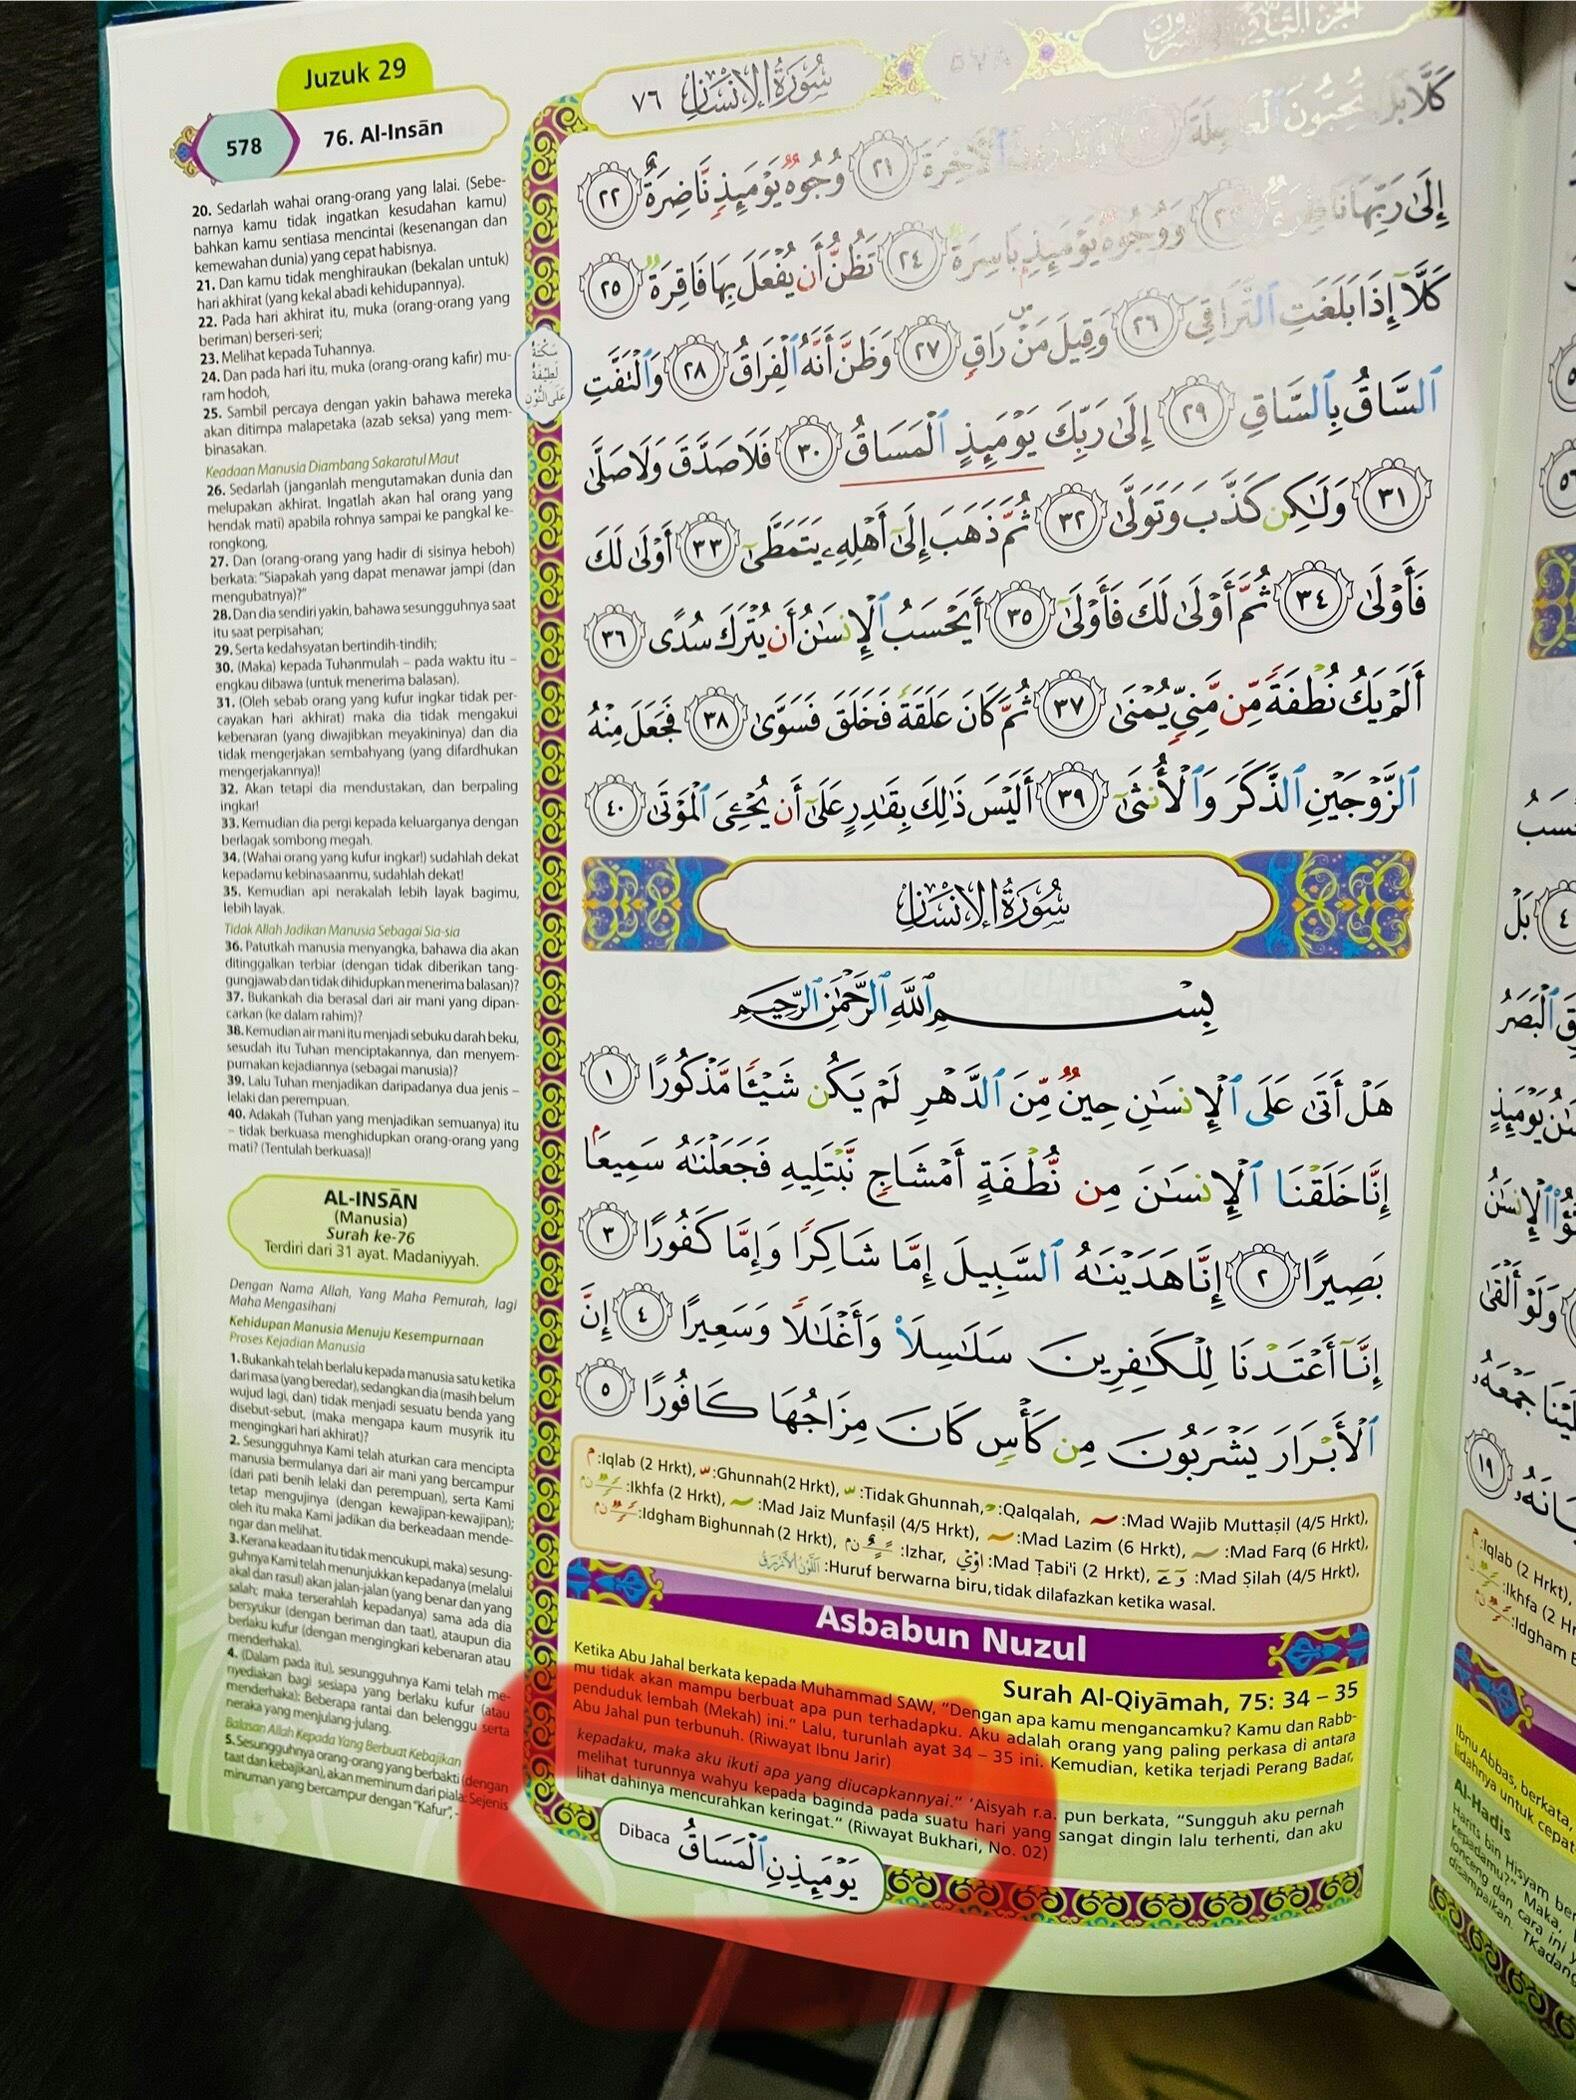 Juzuk 29
578
76. Al-Insān
20. Sedarlah wahai orang-orang yang lalai. (Sebe-
narnya kamu tidak ingatkan kesudahan kamu)
bahkan kamu sentiasa mencintai (kesenangan dan
kemewahan dunia) yang cepat habisnya.
21. Dan kamu tidak menghiraukan (bekalan untuk)
hari akhirat (yang kekal abadi kehidupannya).
22. Pada hari akhirat itu, muka (orang-orang yang
beriman) berseri-seri;
23. Melihat kepada Tuhannya.
24. Dan pada hari itu, muka (orang-orang kafir) mu-
ram hodoh,
25. Sambil percaya dengan yakin bahawa mereka
akan ditimpa malapetaka (azab seksa) yang mem-
binasakan.
Keadaan Manusia Diambang Sakaratul Maut
26. Sedarlah (janganlah mengutamakan dunia dan
melupakan akhirat. Ingatlah akan hal orang yang
hendak mati) apabila rohnya sampai ke pangkal ke-
rongkong,
27. Dan (orang-orang yang hadir di sisinya heboh)
berkata: "Siapakah yang dapat menawar jampi (dan
mengubatnya)?"
28. Dan dia sendiri yakin, bahawa sesungguhnya saat
itu saat perpisahan;
29. Serta kedahsyatan bertindih-tindih;
30. (Maka) kepada Tuhanmulah – pada waktu itu –
engkau dibawa (untuk menerima balasan).
31. (Oleh sebab orang yang kufur ingkar tidak per-
cayakan hari akhirat) maka dia tidak mengakui
kebenaran (yang diwajibkan meyakininya) dan dia
tidak mengerjakan sembahyang (yang difardhukan
mengerjakannya)!
32. Akan tetapi dia mendustakan, dan berpaling
ingkar!
33. Kemudian dia pergi kepada keluarganya dengan
berlagak sombong megah.
34. (Wahai orang yang kufur ingkar!) sudahlah dekat
kepadamu kebinasaanmu, sudahlah dekat!
35. Kemudian api nerakalah lebih layak bagimu,
lebih layak.
Tidak Allah Jadikan Manusia Sebagai Sia-sia
36. Patutkah manusia menyangka, bahawa dia akan
ditinggalkan terbiar (dengan tidak diberikan tang-
gungjawab dan tidak dihidupkan menerima balasan)?
37. Bukankah dia berasal dari air mani yang dipan-
carkan (ke dalam rahim)?
38. Kemudian air mani itu menjadi sebuku darah beku,
sesudah itu Tuhan menciptakannya, dan menyem-
purnakan kejadiannya (sebagai manusia)?
39. Lalu Tuhan menjadikan daripadanya dua jenis –
lelaki dan perempuan.
40. Adakah (Tuhan yang menjadikan semuanya) itu
– tidak berkuasa menghidupkan orang-orang yang
mati? (Tentulah berkuasa)!
AL-INSĀN
(Manusia)
Surah ke-76
Terdiri dari 31 ayat. Madaniyyah.
Dengan Nama Allah, Yang Maha Pemurah, lagi
Maha Mengasihani
Kehidupan Manusia Menuju Kesempurnaan
Proses Kejadian Manusia
1. Bukankah telah berlalu kepada manusia satu ketika
dari masa (yang beredar), sedangkan dia (masih belum
wujud lagi, dan) tidak menjadi sesuatu benda yang
disebut-sebut, (maka mengapa kaum musyrik itu
mengingkari hari akhirat)?
2. Sesungguhnya Kami telah aturkan cara mencipta
manusia bermulanya dari air mani yang bercampur
(dari pati benih lelaki dan perempuan), serta Kami
tetap mengujinya (dengan kewajipan-kewajipan);
oleh itu maka Kami jadikan dia berkeadaan mende-
ngar dan melihat.
3. Kerana keadaan itu tidak mencukupi, maka) sesung-
guhnya Kami telah menunjukkan kepadanya (melalui
akal dan rasul) akan jalan-jalan (yang benar dan yang
salah; maka terserahlah kepadanya) sama ada dia
bersyukur (dengan beriman dan taat), ataupun dia
berlaku kufur (dengan mengingkari kebenaran atau
menderhaka).
4. (Dalam pada itu), sesungguhnya Kami telah me-
nyediakan bagi sesiapa yang berlaku kufur (atau
menderhaka): Beberapa rantai dan belenggu serta
neraka yang menjulang-julang.
Balasan Allah Kepada Yang Berbuat Kebajikan
5. Sesungguhnya orang-orang yang berbakti (dengan
taat dan kebajikan), akan meminum dari piala: Sejenis
minuman yang bercampur dengan "Kafur", -
سُورَةُ الإِنسَانِ ٧٦
كَلَّا بَلْ تُحِبُّونَ الْعَاجِلَةَ الْآخِرَةَ ٢١ وُجُوهٌ يَوْمَئِذٍ نَّاضِرَةٌ ٢٢
إِلَىٰ رَبِّهَا نَاظِرَةٌ وَوُجُوهٌ يَوْمَئِذٍ بَاسِرَةٌ ٢٤ تَظُنُّ أَن يُفْعَلَ بِهَا فَاقِرَةٌ ٢٥
كَلَّا إِذَا بَلَغَتِ التَّرَاقِيَ ٢٦ وَقِيلَ مَنْ ۜ رَاقٍ ٢٧ وَظَنَّ أَنَّهُ الْفِرَاقُ ٢٨ وَالْتَفَّتِ
السَّاقُ بِالسَّاقِ ٢٩ إِلَىٰ رَبِّكَ يَوْمَئِذٍ الْمَسَاقُ ٣٠ فَلَا صَدَّقَ وَلَا صَلَّىٰ
٣١ وَلَٰكِن كَذَّبَ وَتَوَلَّىٰ ٣٢ ثُمَّ ذَهَبَ إِلَىٰ أَهْلِهِ يَتَمَطَّىٰ ٣٣ أَوْلَىٰ لَكَ
فَأَوْلَىٰ ٣٤ ثُمَّ أَوْلَىٰ لَكَ فَأَوْلَىٰ ٣٥ أَيَحْسَبُ الْإِنسَٰنُ أَن يُتْرَكَ سُدًى ٣٦
أَلَمْ يَكُ نُطْفَةً مِّن مَّنِيٍّ يُمْنَىٰ ٣٧ ثُمَّ كَانَ عَلَقَةً فَخَلَقَ فَسَوَّىٰ ٣٨ فَجَعَلَ مِنْهُ
الزَّوْجَيْنِ الذَّكَرَ وَالْأُنثَىٰ ٣٩ أَلَيْسَ ذَٰلِكَ بِقَٰدِرٍ عَلَىٰ أَن يُحْـِۧيَ الْمَوْتَىٰ ٤٠
سَكْتَةٌ
لَطِيفَةٌ
عَلَى النُّونِ
سُورَةُ الإِنسَانِ
بِسْمِ اللَّهِ الرَّحْمَٰنِ الرَّحِيمِ
هَلْ أَتَىٰ عَلَى الْإِنسَٰنِ حِينٌ مِّنَ الدَّهْرِ لَمْ يَكُن شَيْـًٔا مَّذْكُورًا ١
إِنَّا خَلَقْنَا الْإِنسَٰنَ مِن نُّطْفَةٍ أَمْشَاجٍ نَّبْتَلِيهِ فَجَعَلْنَٰهُ سَمِيعًا
بَصِيرًا ٢ إِنَّا هَدَيْنَٰهُ السَّبِيلَ إِمَّا شَاكِرًا وَإِمَّا كَفُورًا ٣
إِنَّا أَعْتَدْنَا لِلْكَٰفِرِينَ سَلَٰسِلَا۟ وَأَغْلَٰلًا وَسَعِيرًا ٤ إِنَّ
الْأَبْرَارَ يَشْرَبُونَ مِن كَأْسٍ كَانَ مِزَاجُهَا كَافُورًا ٥
:Iqlab (2 Hrkt), :Ghunnah(2 Hrkt), :Tidak Ghunnah, :Qalqalah, :Mad Wajib Muttaṣil (4/5 Hrkt),
:Ikhfa (2 Hrkt), :Mad Jaiz Munfaṣil (4/5 Hrkt), :Mad Lazim (6 Hrkt), :Mad Farq (6 Hrkt),
:Idgham Bighunnah (2 Hrkt), :Izhar, :Mad Ṭabi'i (2 Hrkt), :Mad Ṣilah (4/5 Hrkt),
:Huruf berwarna biru, tidak dilafazkan ketika wasal.
Asbabun Nuzul
Surah Al-Qiyāmah, 75: 34 – 35
Ketika Abu Jahal berkata kepada Muhammad SAW, "Dengan apa kamu mengancamku? Kamu dan Rabb-
mu tidak akan mampu berbuat apa pun terhadapku. Aku adalah orang yang paling perkasa di antara
penduduk lembah (Mekah) ini." Lalu, turunlah ayat 34 – 35 ini. Kemudian, ketika terjadi Perang Badar,
Abu Jahal pun terbunuh. (Riwayat Ibnu Jarir)
kepadaku, maka aku ikuti apa yang diucapkannyai." 'Aisyah r.a. pun berkata, "Sungguh aku pernah
melihat turunnya wahyu kepada baginda pada suatu hari yang sangat dingin lalu terhenti, dan aku
lihat dahinya mencurahkan keringat." (Riwayat Bukhari, No. 02)
Dibaca يَوْمَئِذِنِ الْمَسَاقُ
بَلْ ٤
الْبَصَرُ
الْإِنسَٰنُ
وَلَوْ أَلْقَىٰ
جَمْعَهُ
١٩
:Iqlab (2 Hrkt),
:Ikhfa (2 Hr
:Idgham B
Ibnu Abbas, berkata,
lidahnya untuk cepat
Al-Hadis
Harits bin Hisyam ber
kepadamu?" Maka,
lonceng dan cara ini y
disampaikan. TKadang